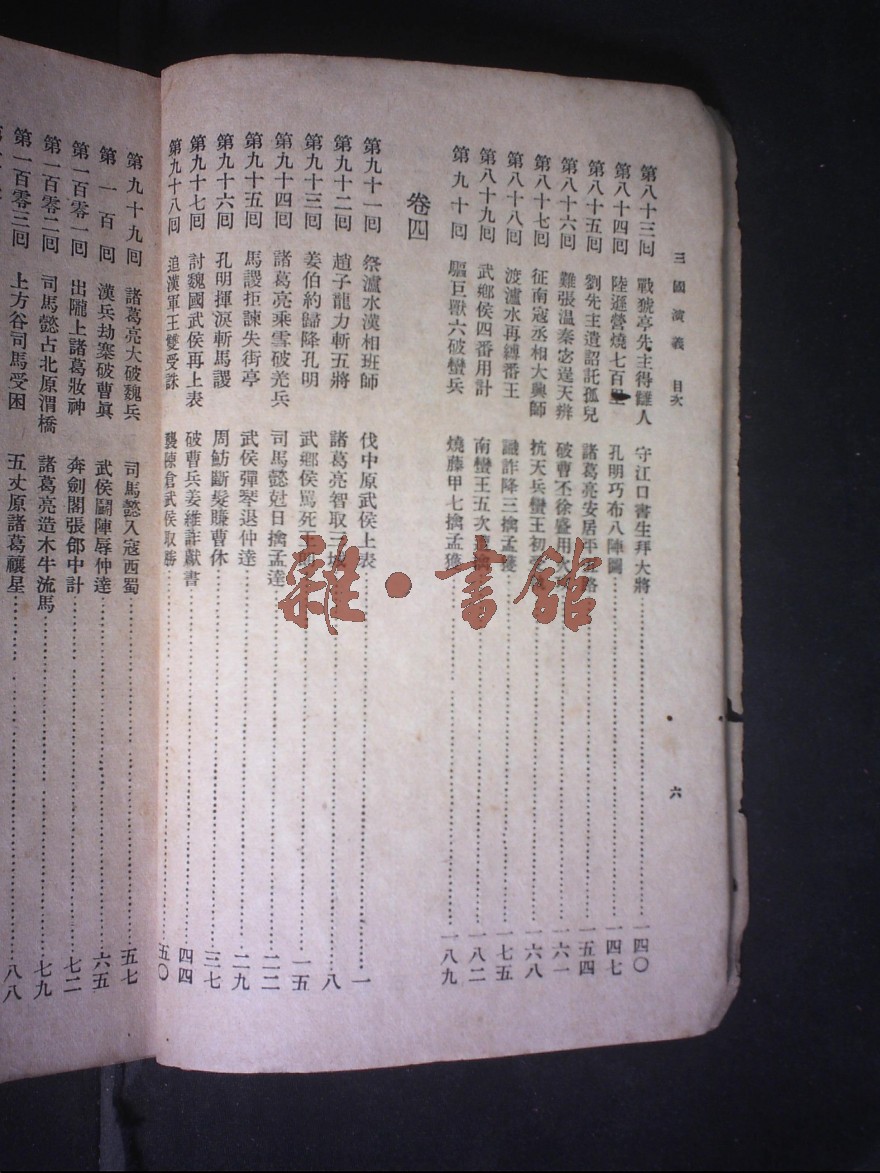 三國演義 目次
六
第八十三回 戰猇亭先主得讎人 守江口書生拜大將 一四〇
第八十四回 陸遜營燒七百里 孔明巧布八陣圖 一四七
第八十五回 劉先主遺詔託孤兒 諸葛亮安居平路 一五四
第八十六回 難張温秦宓逞天辯 破曹丕徐盛用火 一六一
第八十七回 征南寇丞相大興師 抗天兵蠻王初 一六八
第八十八回 渡瀘水再縛番王 識詐降三擒孟獲 一七五
第八十九回 武鄉侯四番用計 南蠻王五次 一八二
第九十回 驅巨獸六破蠻兵 燒藤甲七擒孟獲 一八九
卷四
第九十一回 祭瀘水漢相班師 伐中原武侯上表 一
第九十二回 趙子龍力斬五將 諸葛亮智取三城 八
第九十三回 姜伯約歸降孔明 武鄉侯罵死王 一五
第九十四回 諸葛亮乘雪破羌兵 司馬懿尅日擒孟達 二二
第九十五回 馬謖拒諫失街亭 武侯彈琴退仲達 二九
第九十六回 孔明揮淚斬馬謖 周魴斷髮賺曹休 三七
第九十七回 討魏國武侯再上表 破曹兵姜維詐獻書 四四
第九十八回 追漢軍王雙受誅 襲陳倉武侯取勝 五〇
第九十九回 諸葛亮大破魏兵 司馬懿入寇西蜀 五七
第一百回 漢兵劫寨破曹眞 武侯鬭陣辱仲達 六五
第一百零一回 出隴上諸葛妝神 奔劍閣張郃中計 七二
第一百零二回 司馬懿占北原渭橋 諸葛亮造木牛流馬 七九
第一百零三回 上方谷司馬受困 五丈原諸葛禳星 八八
雜·書館